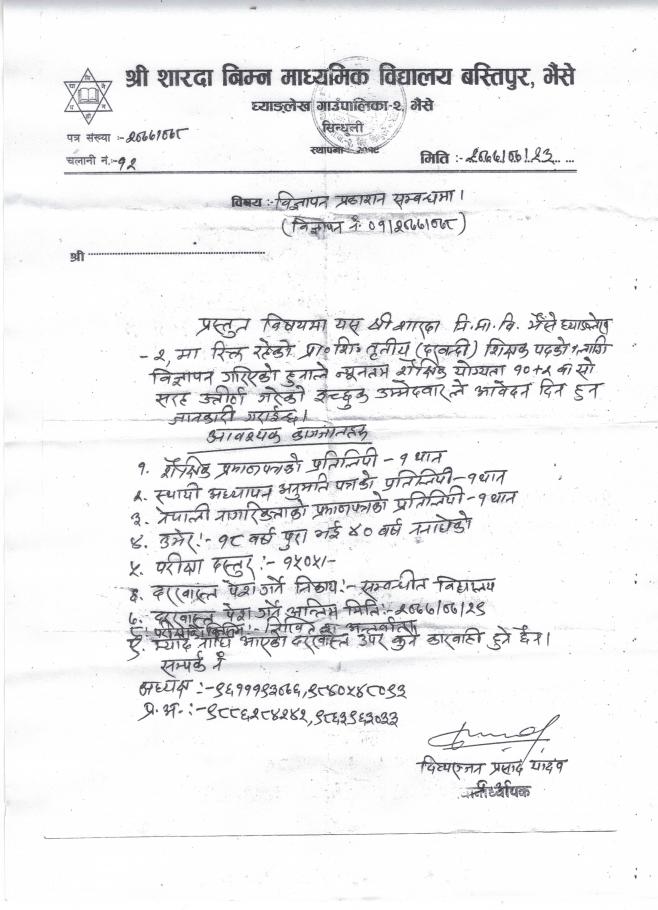 श्री शारदा निम्न माध्यमिक विद्यालय बस्तिपुर, भैंसे
घ्याङलेख गाउँपालिका-२, भैंसे
सिन्धुली
स्थापना
पत्र संख्या :- २०७७/०७८
चलानी नं.:-१२
मिति :- २०७७/०७/२३
विषय :- विज्ञापन प्रकाशन सम्बन्धमा।
(विज्ञापन नं. ०१/२०७७/०७८)
श्री
प्रस्तुत विषयमा यस श्री शारदा नि.मा.वि. भैंसे घ्याङलेख
-२, मा रिक्त रहेको प्रा॰शि॰ तृतीय (दरवन्दी) शिक्षक पदको लागि
विज्ञापन गरिएको हुनाले न्यूनतम शैक्षिक योग्यता १०+२ वा सो
सरह उत्तीर्ण गरेको इच्छुक उम्मेदवारले आवेदन दिन हुन
जानकारी गराईन्छ।
आवश्यक कागजातहरू
१. शैक्षिक प्रमाणपत्रको प्रतिलिपी - १ थान
२. स्थायी अध्यापन अनुमति पत्रको प्रतिलिपी - १ थान
३. नेपाली नागरिकताको प्रमाणपत्रको प्रतिलिपी - १ थान
४. उमेर :- १८ वर्ष पुरा भई ४० वर्ष ननाघेको
५. परीक्षा दस्तुर :- १५०५/-
६. दरखास्त पेश गर्ने निकाय :- सम्बन्धीत विद्यालय
७. दरखास्त पेश गर्ने अन्तिम मिति :- २०७७/०७/२९
८. परीक्षाको किसिम :- लिखित र अन्तर्वार्ता
९. म्याद नाघि आएको दरखास्त उपर कुनै कारवाही हुने छैन।
सम्पर्क नं
अध्यक्ष :- ९६१११९३०७६, ९८४०५४८०९३
प्र.अ. :- ९८८६२८४२४२, ९८६३९६३०३३
प्रसाद यादव